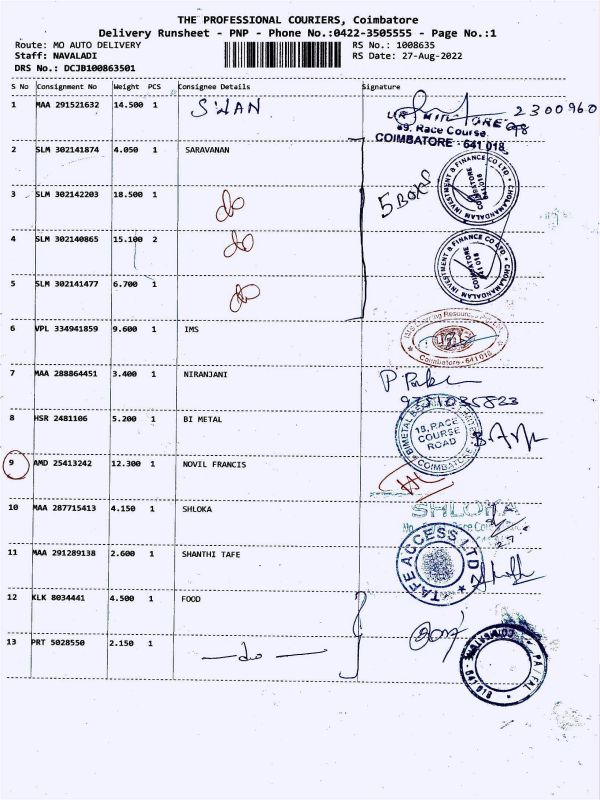 THE PROFESSIONAL COURIERS, Coimbatore
Delivery Runsheet - PNP - Phone No.:0422-3505555 - Page No.:1
Route: MO AUTO DELIVERY RS No.: 1008635
Staff: NAVALADI RS Date: 27-Aug-2022
DRS No.: DCJB100863501
S No Consignment No Weight PCS Consignee Details Signature
1 MAA 291521632 14.500 1 2300960
69, Race Course
COIMBATORE - 641 018
2 SLM 302141874 4.050 1 SARAVANAN
CHOLAMANDALAM INVESTMENT & FINANCE CO LTD
COIMBATORE 641 018
3 SLM 302142203 18.500 1 do 5 BOXES
4 SLM 302140865 15.100 2 do
CHOLAMANDALAM INVESTMENT & FINANCE CO LTD
COIMBATORE 641 018
5 SLM 302141477 6.700 1 do
6 VPL 334941859 9.600 1 IMS
Coimbatore - 641 018
7 MAA 288864451 3.400 1 NIRANJANI
8 HSR 2481106 5.200 1 BI METAL
18, RACE COURSE ROAD
COIMBATORE
9 AMD 25413242 12.300 1 NOVIL FRANCIS
10 MAA 287715413 4.150 1 SHLOKA SHLOKA
11 MAA 291289138 2.600 1 SHANTHI TAFE
TAFE ACCESS LTD
12 KLK 8034441 4.500 1 FOOD
13 PRT 5028550 2.150 1 do
COIMBATORE 641 018